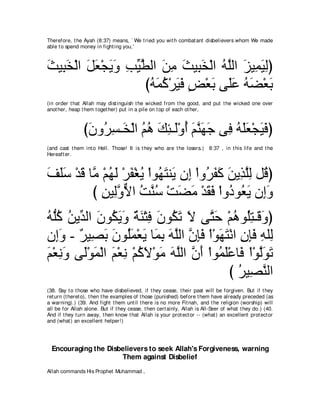 Therefore, the Ayah (8:37) means, ` We tried you with combatant disbelievers whom We made
able to spend money in fighting you,'
لِيَمِيزَ اللَّهُ الْخَبِيثَ مِنَ الطَّيِّبِ وَيَجْعَلَ الْخَبِيثَ)
(بَعْضَهُ عَلَى بَعْضٍ فَيَرْكُمَهُ
(in order that Allah may distinguish the wicked from the good, and put the wicked one over
another, heap them together) put in a pile on top of each other,
(فَيَجْعَلَهُ فِى جَهَنَّمَ أُوْلَـئِكَ هُمُ الْخَـسِرُونَ)
(and cast them into Hell. Those! It is they who are the losers.) 8:37 , in this life and the
Hereafter.
قُل لِلَّذِينَ كَفَرُواْ إِن يَنتَهُواْ يُغْفَرْ لَهُمْ مَّا قَدْ سَلَفَ)
وَإِن يَعُودُواْ فَقَدْ مَضَتْ سُنَّتُ الاٌّوَّلِينِ )
(وَقَـتِلُوهُمْ حَتَّى لاَ تَكُونَ فِتْنَةٌ وَيَكُونَ الدِّينُ كُلُّهُ
لِلَّهِ فَإِنِ انْتَهَوْاْ فَإِنَّ اللَّهَ بِمَا يَعْمَلُونَ بَصِيرٌ - وَإِن
تَوَلَّوْاْ فَاعْلَمُواْ أَنَّ اللَّهَ مَوْلاَكُمْ نِعْمَ الْمَوْلَى وَنِعْمَ
النَّصِيرُ )
(38. Say to those who have disbelieved, if they cease, their past will be forgiven. But if they
return (thereto), then the examples of those (punished) before them have already preceded (as
a warning).) (39. And fight them until there is no more Fitnah, and the religion (worship) will
all be for Allah alone. But if they cease, then certainly, Allah is All-Seer of what they do.) (40.
And if they turn away, then know that Allah is your protector -- (what) an excellent protector
and (what) an excellent helper!)
Encouraging the Disbelievers to seek Allah's Forgiveness, warning
Them against Disbelief
Allah commands His Prophet Muhammad ,